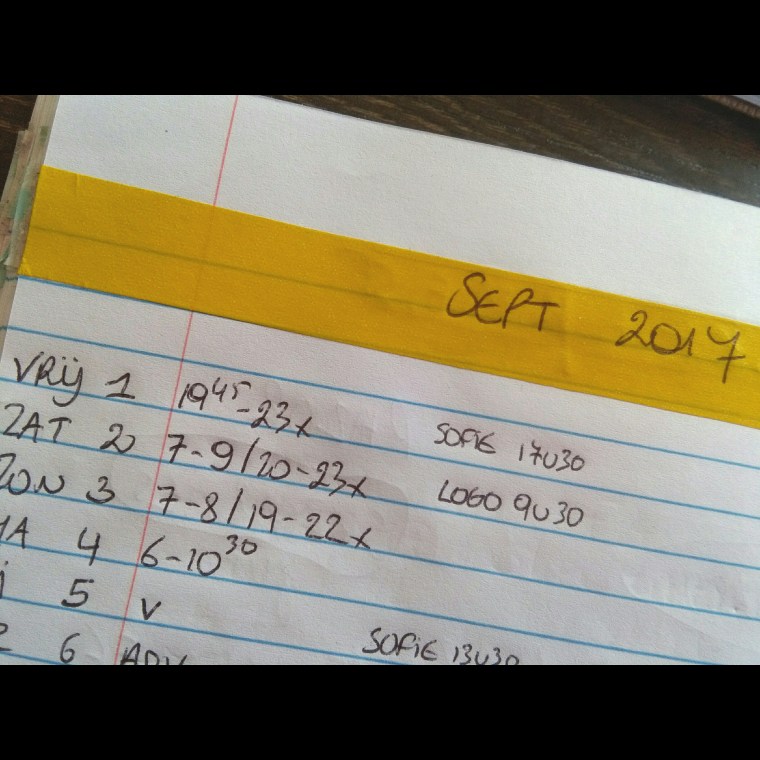 SEPT 2017
VRIJ 1 19⁴⁵-23x
ZAT 2 7-9/20-23x SOFIE 17U30
ZON 3 7-8/19-22x LOGO 9U30
MA 4 6-10³⁰
5 V
6 ADV SOFIE 13U30